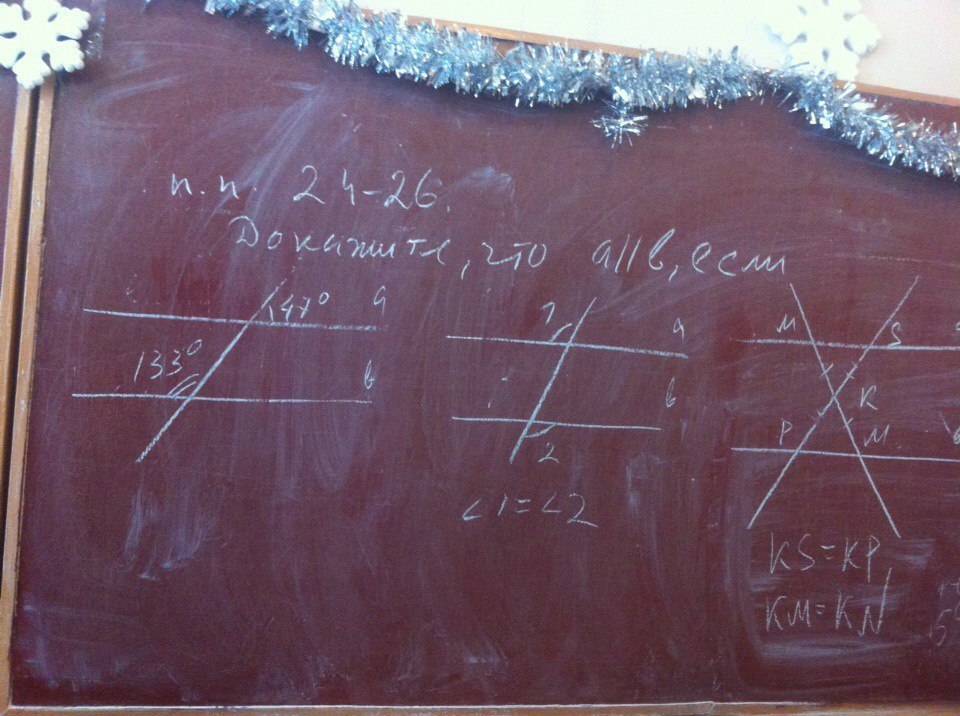 п.п. 24-26.
Докажите, что a||b, если
47° a
133° b
1 a
b
2
∠1=∠2
M S
K
P M
KS=KP,
KM=KN